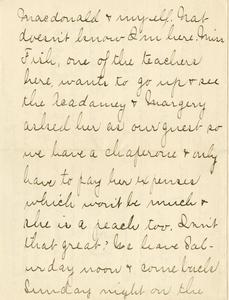 Macdonald & myself. Nat
doesn't know I'm here. Miss
Fish, one of the teachers
here, wants to go up & see
the Academy & Margery
asked her as our guest so
we have a chaperone & only
have to pay her expenses
which won't be much &
she is a peach too. Isn't
that great? We leave Sat-
urday noon & come back
Sunday night on the